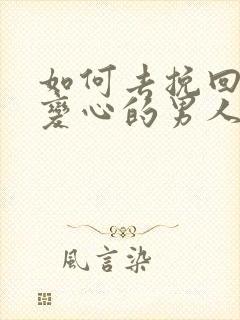 如何去挽回
變心的男人
風言染